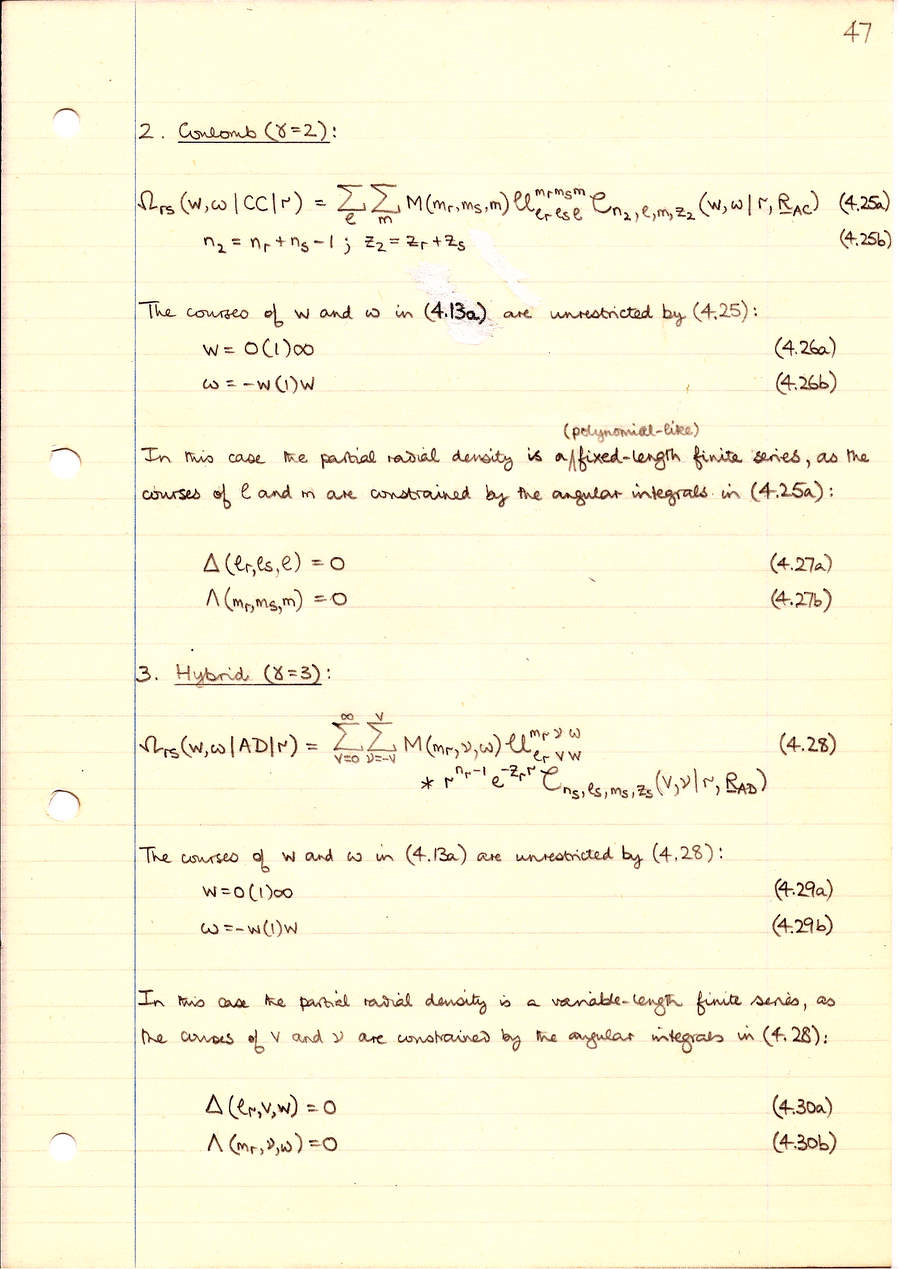 47
2. Coulomb (γ=2):
Ω_rs (w,ω|CC|r) = Σ_ℓ Σ_m M(m_r,m_s,m) 𝒰^{m_r m_s m}_{ℓ_r ℓ_s ℓ} 𝒞_{n_2,ℓ,m,z_2} (w,ω|r,R_AC) (4.25a)
n_2 = n_r + n_s - 1 ; z_2 = z_r + z_s (4.25b)
The courses of w and ω in (4.13a) are unrestricted by (4.25):
w = 0(1)∞ (4.26a)
ω = -w(1)w (4.26b)
(polynomial-like)
In this case the partial radial density is a/fixed-length finite series, as the
courses of ℓ and m are constrained by the angular integrals in (4.25a):
Δ(ℓ_r,ℓ_s,ℓ) = 0 (4.27a)
Λ(m_r,m_s,m) = 0 (4.27b)
3. Hybrid (γ=3):
Ω_rs (w,ω|AD|r) = Σ_{v=0}^{∞} Σ_{ν=-v}^{v} M(m_r,ν,ω) 𝒰^{m_r ν ω}_{ℓ_r v w} (4.28)
* r^{n_r-1} e^{-z_r r} 𝒞_{n_s,ℓ_s,m_s,z_s} (v,ν|r,R_AD)
The courses of w and ω in (4.13a) are unrestricted by (4.28):
w = 0(1)∞ (4.29a)
ω = -w(1)w (4.29b)
In this case the partial radial density is a variable-length finite series, as
the courses of v and ν are constrained by the angular integrals in (4.28):
Δ(ℓ_r,v,w) = 0 (4.30a)
Λ(m_r,ν,ω) = 0 (4.30b)